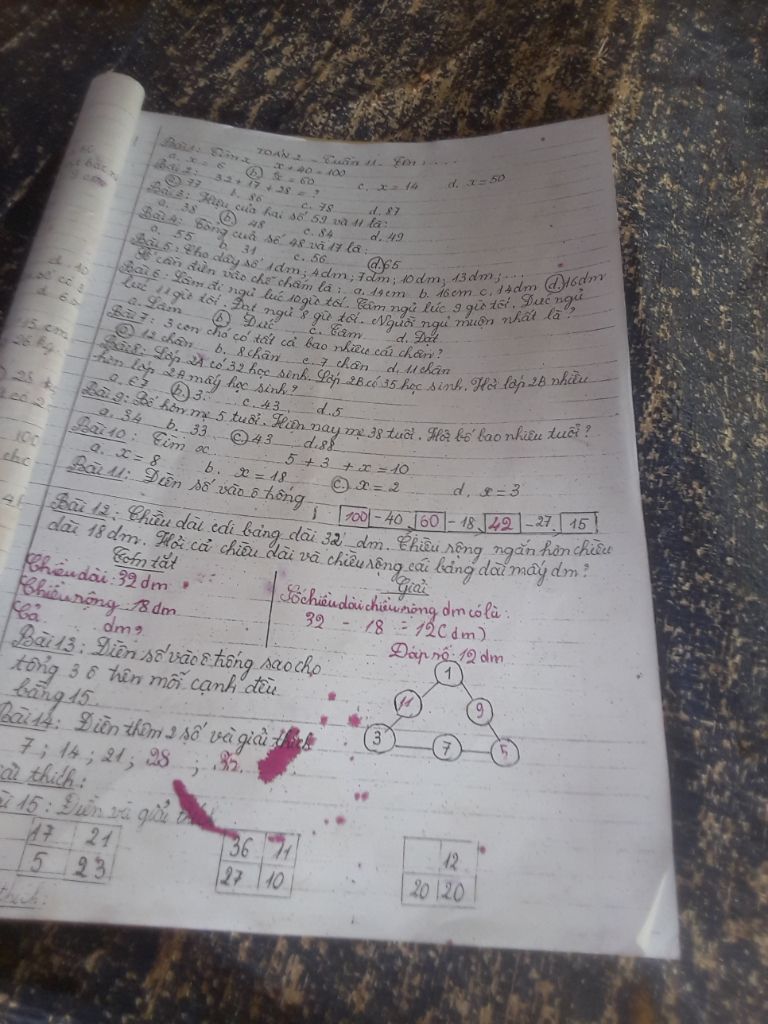 TOÁN 2 - Tuần 11 - Tên: ....
Bài 1: Tìm x x + 40 = 100
a. x = 6 b. x = 60 c. x = 14 d. x = 50
Bài 2: 32 + 17 + 28 = ?
a. 77 b. 86 c. 78 d. 87
Bài 3: Hiệu của hai số 59 và 11 là:
a. 38 b. 48 c. 84 d. 49
Bài 4: Tổng của số 48 và 17 là:
a. 55 b. 31 c. 56 d. 65
Bài 5: Cho dãy số 1dm; 4dm; 7dm; 10dm; 13dm; ...
Số cần điền vào chỗ chấm là: a. 14cm b. 16cm c. 14dm d. 16dm
Bài 6: Lâm đi ngủ lúc 10 giờ tối. Tâm ngủ lúc 9 giờ tối. Đức ngủ
lúc 11 giờ tối. Đạt ngủ 8 giờ tối. Người ngủ muộn nhất là?
a. Lâm b. Đức c. Tâm d. Đạt
Bài 7: 3 con chó có tất cả bao nhiêu cái chân?
a. 12 chân b. 8 chân c. 7 chân d. 11 chân
Bài 8: Lớp 2A có 32 học sinh. Lớp 2B có 35 học sinh. Hỏi lớp 2B nhiều
hơn lớp 2A mấy học sinh?
a. 67 b. 3 c. 43 d. 5
Bài 9: Bố hơn mẹ 5 tuổi. Hiện nay mẹ 38 tuổi. Hỏi bố bao nhiêu tuổi?
a. 34 b. 33 c. 43 d. 88
Bài 10: Tìm x 5 + 3 + x = 10
a. x = 8 b. x = 18 c. x = 2 d. x = 3
Bài 11: Điền số vào ô trống
100 - 40 60 - 18 42 - 27 15
Bài 12: Chiều dài cái bảng dài 32 dm. Chiều rộng ngắn hơn chiều
dài 18 dm. Hỏi cả chiều dài và chiều rộng cái bảng dài mấy dm?
Tóm tắt Giải
Chiều dài: 32 dm
Chiều rộng: 18 dm
Cả dm?
Số chiều dài chiều rộng dm có là:
32 - 18 = 12 (dm)
Đáp số: 12 dm
Bài 13: Điền số vào ô trống sao cho
tổng 3 ô trên mỗi cạnh đều
bằng 15.
1
11 9
3 7 5
Bài 14: Điền thêm 2 số và giải thích
7; 14; 21; 28; 
Giải thích:
Bài 15: Điền và giải
17 21 36 11 12
5 23 27 10 20 20
thích: